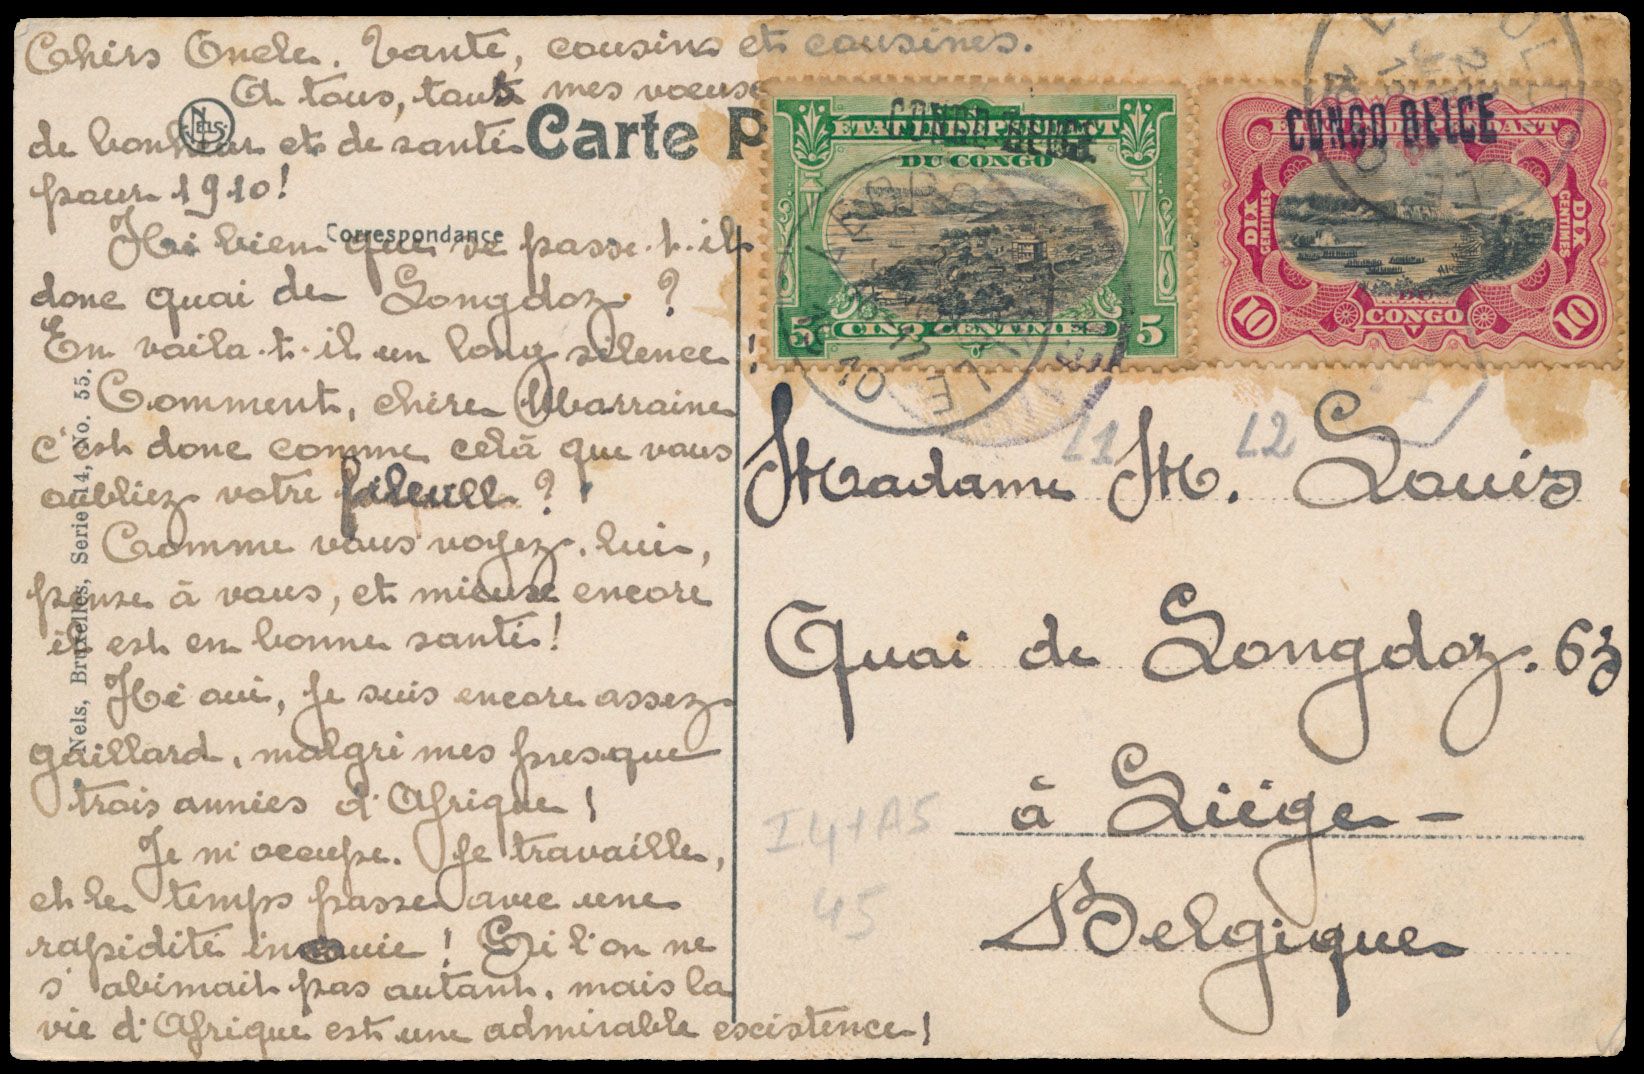 Chers Oncle. Tante, cousins et cousines.
A tous, tous mes voeux
de bonheur et de santé
pour 1910!
Hé bien que se passe-t-il
donc quai de Longdoz?
En voila-t-il un long silence!
Comment, chère Marraine
c'est donc comme celà que vous
oubliez votre filleull?
Comme vous voyez, lui,
pense à vous, et mieux encore
il est en bonne santé!
Hé oui, je suis encore assez
gaillard, malgré mes presque
trois années d'Afrique!
Je m'occupe. Je travaille,
et le temps passe avec une
rapidité inouie! Si l'on ne
s'abimait pas autant, mais la
vie d'Afrique est une admirable existence!
Nels
Carte P
Correspondance
Nels, Bruxelles, Serie 14, No. 55.
CONGO BELGE
ETAT INDEPENDANT
DU CONGO
5 CINQ CENTIMES 5
CONGO BELGE
DIX CENTIMES
DIX CENTIMES
10 DU CONGO 10
L1 L2
Madame M. Louis
Quai de Longdoz. 63
à Liége-
Belgique
I4+A5
45